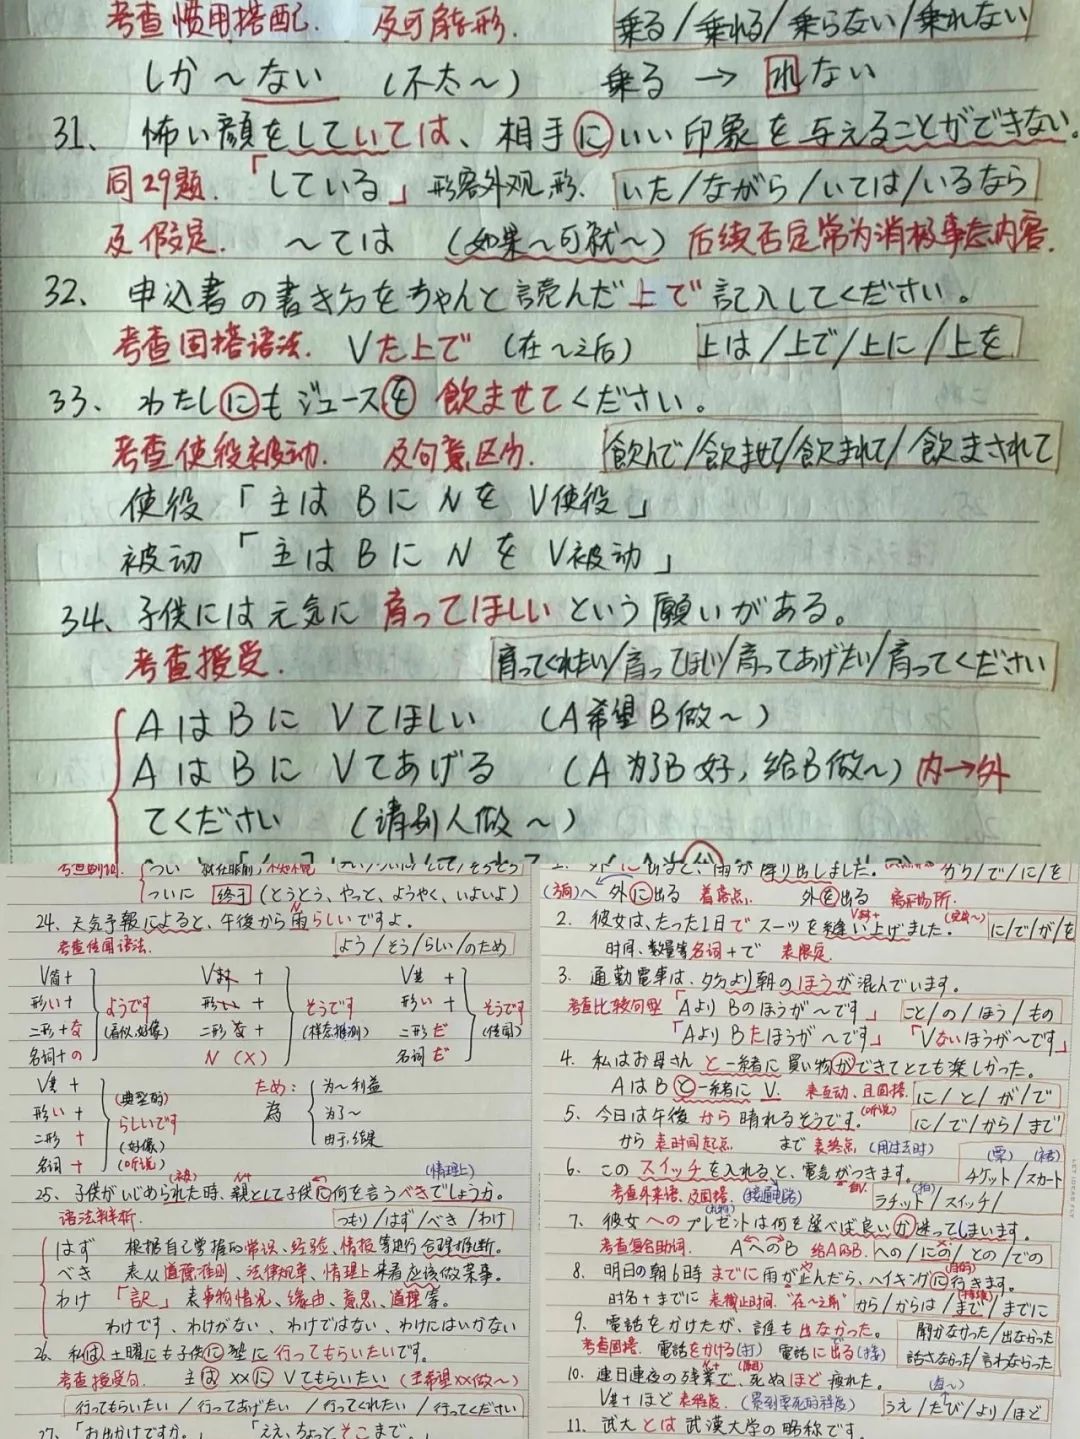 考查惯用搭配. 及可能形. 乗る/乗れる/乗らない/乗れない
しか～ない (不太～) 乗る → れない
31、怖い顔をしていては、相手にいい印象を与えることができない。
同29题.「している」形容外观形. いた/ながら/いては/いるなら
及假定. ～ては (如果～可就～) 后续否定常为消极事态内容.
32、申込書の書き方をちゃんと読んだ上で記入してください。
考查固搭语法. Vた上で (在～之后) 上は/上で/上に/上を
33、わたしにもジュースを飲ませてください。
考查使役被动. 及句意区分. 飲んで/飲ませて/飲まれて/飲まされて
使役「主は Bに Nを V使役」
被动「主は Bに Nを V被动」
34、子供には元気に育ってほしいという願いがある。
考查授受. 育ってくれたい/育ってほしい/育ってあげたい/育ってください
AはBに Vてほしい (A希望B做～)
AはBに Vてあげる (A为了B好，给B做～) 内→外
てください (请别人做～)
つい
ついに 终于 (とうとう、やっと、ようやく、いよいよ)
24、天気予報によると、午後から雨らしいですよ.
考查传闻语法. よう/そう/らしい/のため
V简+ V ます + V差 +
形い + 形い + 形い +
二形+な 二形 な + 二形 だ
名词+の N (X) 名词 だ
ようです (看似,好像)
そうです (样态推测)
そうです (传闻)
形い +
二形 +
名词 +
(典型的) らしいです (好像) (听说)
ため: 為
为～利益
为了～
由于,结果
25、子供がいじめられた時、親として子供に何を言うべきでしょうか. (被) (情理上)
语法辨析. つもり/はず/べき/わけ
はず 根据自己掌握的常识、经验、情报等进行合理推断.
べき 表从道德准则、法律规章、情理上来看应该做某事.
わけ 「訳」表事物情况、缘由、意思、道理等.
わけです、わけがない、わけではない、わけにはいかない
26、私は土曜にも子供に塾に行ってもらいたいです.
考查授受句. 主は XXに Vてもらいたい (主希望XX做～)
行ってもらいたい/行ってあげたい/行ってくれたい/行ってください
27、「お出かけですか。」「ええ、ちょっとそこまで。」
雨が降り出しました. から/で/に/を
外に出る 着落点. 外を出る 离开场所.
2. 彼女は、たった1日でスーツを縫い上げました. (完成～) に/で/が/を
时间、数量等名词+で 表限定.
3. 通勤電車は、夕方より朝のほうが混んでいます.
考查比较句型「AよりBのほうが～です」 こと/の/ほう/もの
「AよりBたほうが～です」「Vないほうが～です」
4. 私はお母さんと一緒に買い物ができてとても楽しかった.
AはBと一緒に V. 表互动、且固搭. に/と/が/で
5. 今日は午後から晴れるそうです. (听说) に/で/から/まで
から 表时间起点 まで 表终点 (用过去时)
6. このスイッチを入れると、電気がつきます. (票) (裙) チケット/スカート
考查外来语、及固搭. (接通电路) ラチット/スイッチ/
7. 彼女へのプレゼントは何を選べば良いか迷ってしまいます.
考查复合助词. AへのB 给A的B. への/にの/との/での
8. 明日の朝6時までに雨が止んだら、ハイキングに行きます. (目的)
时名+までに 表截止时间.“在～之前” から/からは/まで/までに
9. 電話をかけたが、誰も出なかった. 聞かなかった/出なかった
考查固搭. 電話をかける(打) 電話に出る(接) 話さなかった/言わなかった
10. 連日連夜の残業で、死ぬほど疲れた.
V差+ほど 表程度. (累到要死的程度) うえ/たび/より/ほど
11. 武大とは武漢大学の略称です.